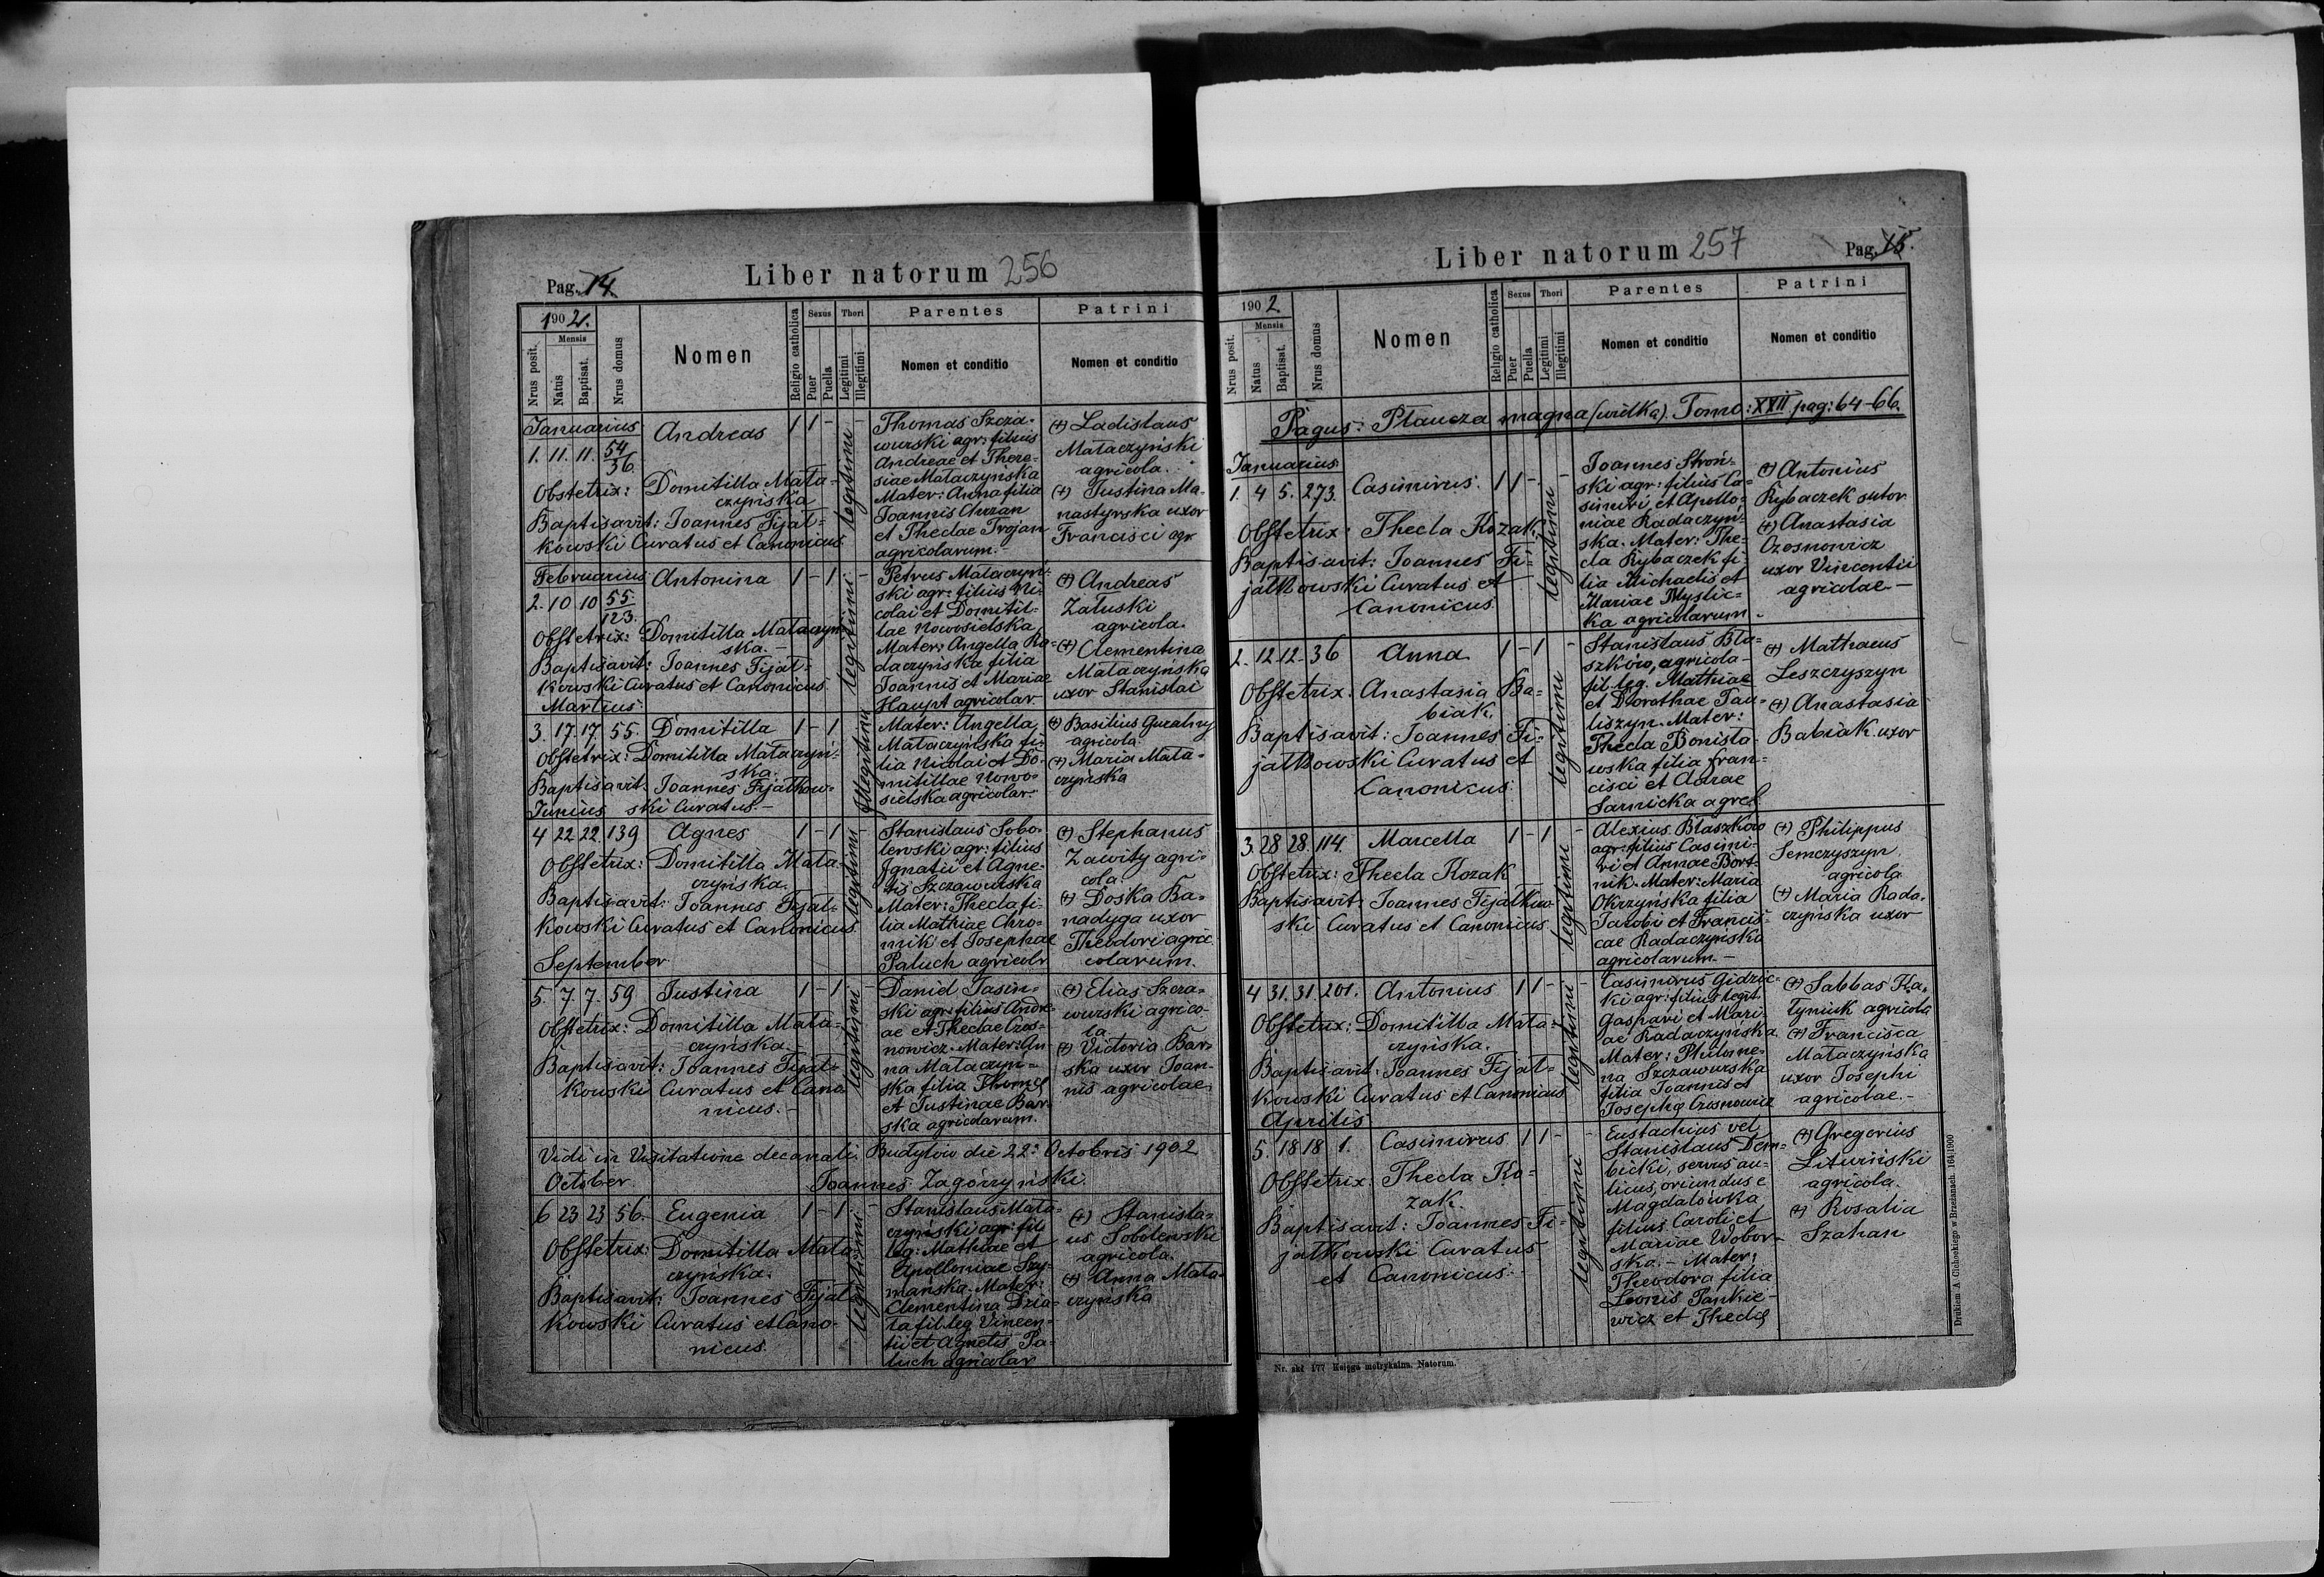 Pag. 14
Liber natorum 256
1902.
Nrus posit.
Mensis
Natus
Baptisat.
Nrus domus
Nomen
Religio catholica
Sexus
Puer
Puella
Thori
Legitimi
Illegitimi
Parentes
Nomen et conditio
Patrini
Nomen et conditio
Januarius
1. 11. 11. 54/56.
Andreas
1 1 - -
legitimi
Obstetrix: Domitilla Mata-
czyńska
Baptisavit: Joannes Fijał-
kowski Curatus et Canonicus.
Thomas Szcza-
wurski agr: filius
Andreae et There-
siae Mataczyńska
Mater: Anna filia
Joannis Chrzan
et Theclae Trojan
agricolarum.-
(+) Ladislaus
Mataczyński
agricola.
(+) Justina Ma-
nastyrska uxor
Francisci agr
Februarius
2. 10 10 55/123.
Antonina
1 - 1 -
legitimi
Obstetrix: Domitilla Mataczyń-
ska.-
Baptisavit: Joannes Fijał-
kowski Curatus et Canonicus
Petrus Mataczyń-
ski agr: filius Ni-
colai et Domitil-
lae Nowosielska
Mater: Angella Ra-
daczyńska filia
Joannis et Mariae
Haupt agricolar.
(+) Andreas
Załuski
agricola.
(+) Clementina
Mataczyńska
uxor Stanislai
Martius
3. 17. 17. 55. Domitilla 1 - 1
Illegitimi
Obstetrix: Domitilla Mataczyń-
ska.
Baptisavit: Joannes Fijałkow-
ski Curatus.-
Mater: Angella
Mataczyńska fi-
lia Nicolai et Do-
mitillae Nowo-
sielska agricolar.
(+) Basilius
agricola
(+) Maria Mata-
czyńska
Junius
4 22 22 139 Agnes 1 - 1 -
legitimi
Obstetrix: Domitilla Mata-
czyńska.
Baptisavit: Joannes Fijał-
kowski Curatus et Canonicus.
Stanislaus Sobo-
lewski agr: filius
Ignatii et Agne-
tis Szczawurska
Mater: Thecla fi-
lia Mathiae Chro-
mik et Josephae
Paluch agricolr
(+) Stephanus
Zawity agri-
cola.
(+) Doska Ba-
nadyga uxor
Theodori agric
colarum.
September
5. 7. 7. 59 Justina 1 - 1 -
legitimi
Obstetrix: Domitilla Mata-
czyńska.-
Baptisavit: Joannes Fijał-
kowski Curatus et Cano-
nicus.-
Daniel Jasiń-
ski agr: filius Andre-
ae et Theclae Czes-
nowicz. Mater: An-
na Mataczyń-
ska filia Thomae
et Justinae Bar-
ska agricolarum.
(+) Elias Szcza-
wurski agrico-
la
(+) Victoria Bar-
ska uxor Joan-
nis agricolae
Vidi in Visitatione decanali. Budyłów die 22º Octobris 1902
Joannes Zagórzyński.
October
6 23 23 56. Eugenia 1 - 1 -
legitimi
Obstetrix: Domitilla Mata-
czyńska.
Baptisavit: Joannes Fijał-
kowski Curatus et Cano-
nicus.
Stanislaus Mata-
czyński agr: fil:
leg: Mathiae et
Apolloniae Szy-
mańska. Mater:
Clementina Dzia-
ta fil. leg Vincen-
tii et Agnetis Pa-
luch agricolar
(+) Stanisla-
us Sobolewski
agricola.
(+) Anna Mata-
czyńska
Liber natorum 257
Pag. 15.
1902
Nrus posit.
Mensis
Natus
Baptisat.
Nrus domus
Nomen
Religio catholica
Sexus
Puer
Puella
Thori
Legitimi
Illegitimi
Parentes
Nomen et conditio
Patrini
Nomen et conditio
Pagus: Płaucza magna (wielka). Tomo: XVII pag: 64-66.
Januarius
1. 4 5. 273. Casimirus. 1 1 - -
legitimi
Obstetrix: Thecla Kozak.
Baptisavit: Joannes Fi-
jałkowski Curatus et
Canonicus.
Joannes Stroń-
ski agr: filius Ca-
simiri et Apollo-
niae Radaczyń-
ska. Mater: The-
cla Rybaczek fi-
lia Michaelis et
Mariae Myslic-
ka agricolarum.
(+) Antonius
Rybaczek sutor
(+) Anastasia
Czesnowicz
uxor Vincentii
agricolae -
2. 12 12. 36 Anna 1 - 1 -
legitimi
Obstetrix: Anastasia Ba-
biak.
Baptisavit: Joannes Fi-
jałkowski Curatus et
Canonicus.
Stanislaus Bła-
szków, agricola
fil. leg. Mathiae
et Dorothae Pau-
liszyn. Mater:
Thecla Bonista-
wska filia Fran-
cisci et Clarae
Sarnicka agrel
(+) Mathaeus
Leszczyszyn
(+) Anastasia
Babiak uxor
3. 28 28. 114. Marcella 1 - 1 -
legitimi
Obstetrix: Thecla Kozak
Baptisavit: Joannes Fijałkow-
ski Curatus et Canonicus.
Alexius Błaszków
agr: filius Casimi-
ri et Annae Bort-
nik. Mater: Maria
Okrzyńska filia
Jacobi et Francis-
cae Radaczyńska
agricolarum.-
(+) Philippus
Semczyszyn
agricola
(+) Maria Rada-
czyńska uxor
4 31. 31 201. Antonius 1 1 - -
legitimi
Obstetrix: Domitilla Mata-
czyńska.
Baptisavit: Joannes Fijał-
kowski Curatus et Canonicus
Casimirus Gidzic-
ki agr: filius legit.
Gaspari et Mari-
ae Radaczyńska.
Mater: Philome-
na Szczawurska
filia Joannis et
Josephae Czesnowicz
(+) Sabbas Ha-
tyniuk agricola
(+) Francisca
Mataczyńska
uxor Josephi
agricolae.-
Aprilis
5. 18 18 1. Casimirus 1 1 - -
legitimi
Obstetrix: Thecla Ko-
zak.
Baptisavit: Joannes Fi-
jałkowski Curatus
et Canonicus.
Eustachius vel
Stanislaus Dem-
bicki, servus au-
licus, oriundus e
Magdalówka
filius Caroli et
Mariae Wobor-
ska. - Mater:
Theodora filia
Leonis Pankie-
wicz et Theclae
(+) Gregorius
Lituriński
agricola.
(+) Rosalia
Szahan
Drukiem A. Cichockiego w Brzeżanach. 164|1000
Nr. skł 177 Księga metrykalna. Natorum.